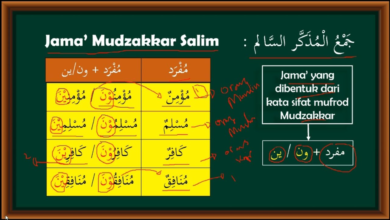 Jama' Mudzakkar Salim
جَمْعُ الْمُذَكَّر السَّالِم :
مُفْرَد + ون/ين
مُفْرَد
مُؤْمِنٌ
مُؤْمِنُوْنَ / مُؤْمِنِيْنَ
مُسْلِمٌ
مُسْلِمُوْنَ / مُسْلِمِيْنَ
كَافِرٌ
كَافِرُوْنَ / كَافِرِيْنَ
مُنَافِقٌ
مُنَافِقُوْنَ / مُنَافِقِيْنَ
Jama' yang
dibentuk dari
kata sifat mufrod
Mudzakkar
مفرد + ون / ين